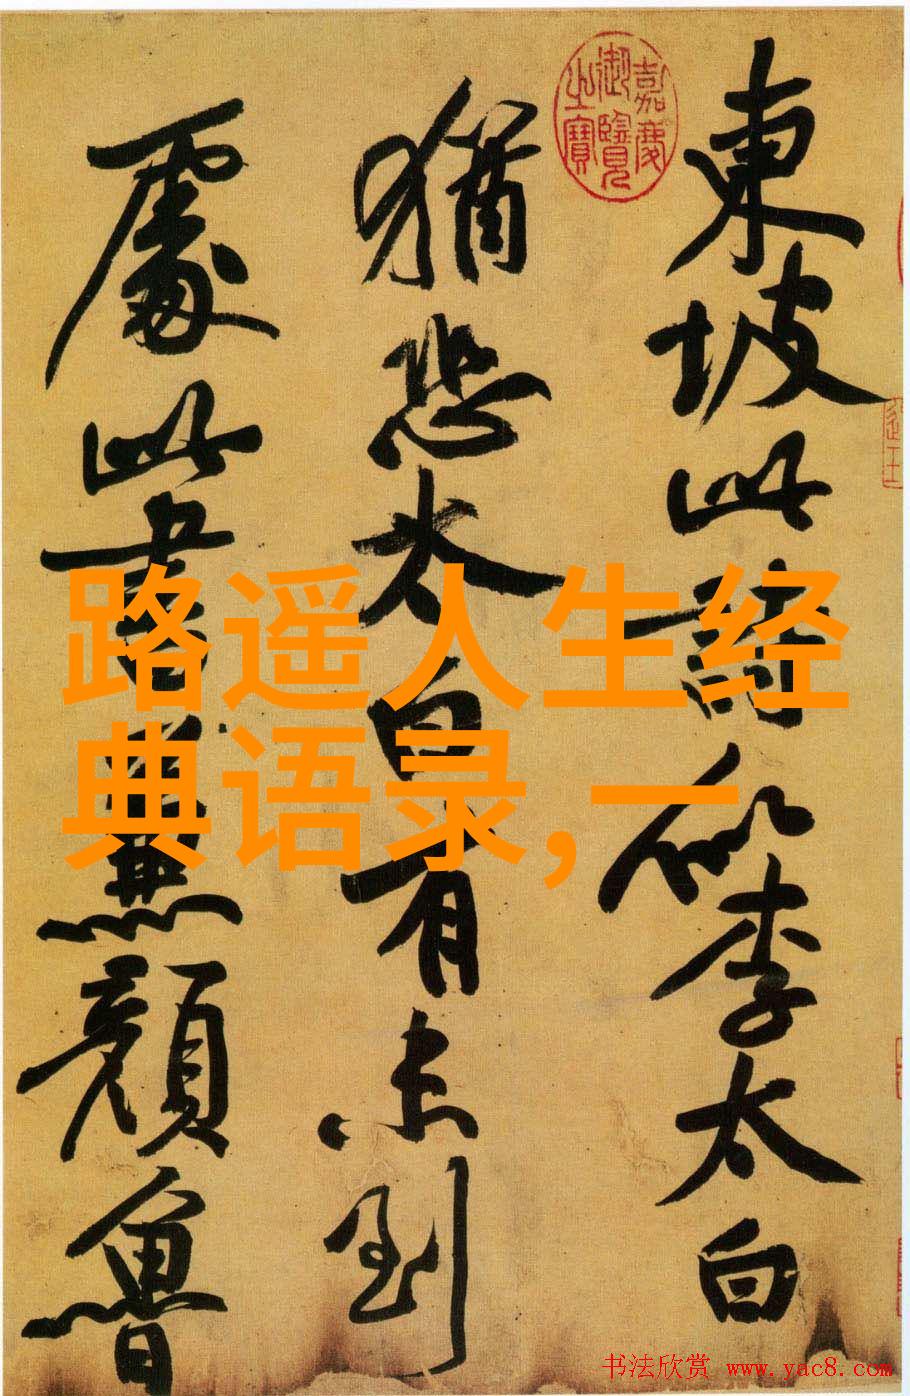 東坡此詩似李太白
猶恐太白有未到
處此書兼顏魯
嘉慶
御覽
之寶
路遥人生经
典语录,一
书法欣赏 www.yac8.com